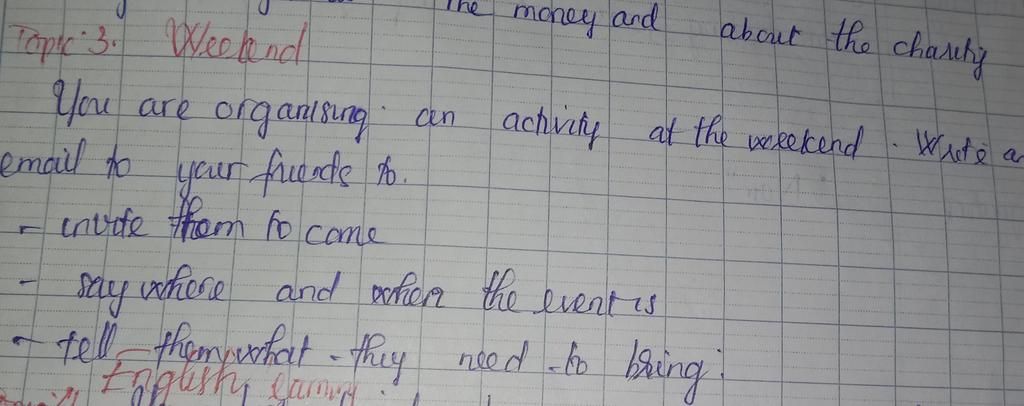 the money and about the charity
Topic 3. Weekend
You are organising an activity at the weekend. Write an
email to your friends to.
- invite them to come
- say where and when the event is
- tell them what they need to bring.
English